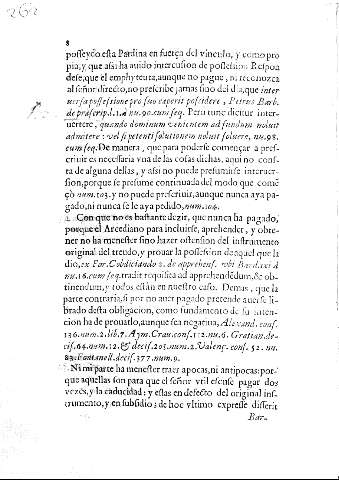 262
8
posseydo esta Pardina en fuerça del vinculo, y como pro
pia, y que assi ha auido intercusion de possession Respon
dese, que el emphyteuta, aunque no pague, ni reconozca
al señor directo, no prescribe jamas sino del dia, que inter
uersa possessione pro suo cæperit possidere, Petrus Barb.
de præscrip. l. 1. à nu. 90. cum seq. Pero tunc dicitur inter-
uertere, quando dominum venientem ad fundum noluit
admittere: vel si petenti solutionem noluit soluere, nu. 98.
cum seq. De manera, que para poderse começar a pres-
criuir es necessaria vna de las cosas dichas, aqui no cons-
ta de alguna dellas, y assi no puede presumirse interuer-
sion, porque se presume continuada del modo que come
ço num. 103. y no puede prescriuir, aunque nunca aya pa-
gado, ni nunca se le aya pedido, num. 104.
Con que no es bastante dezir, que nunca ha pagado,
porque el Arcediano para incluirse, aprehender, y obte-
ner no ha menester sino hazer ostension del instrumento
original del treudo, y prouar la possession de aquel que la
dio, ex For. Cobdiciando 2. de apprehens. vbi Bardaxi à
nu. 16. cum seq. tradit requisita ad apprehendẽdum, & ob-
tinendum, y todos están en nuestro caso. Demas, que la
parte contraria, si por no auer pagado pretende auerse li-
brado desta obligacion, como fundamento de su inten-
cion ha de prouarlo, aunque sea negatiua, Alexand. cons.
136. num. 2. lib. 7. Aym. Crau. cons. 112. nu. 6. Gratian. de-
cis. 64. num. 12. & decis. 203. num. 2. Valenz. cons. 52. nu.
83. Fontanell. decis. 377. num. 9.
Ni mi parte ha menester traer apocas, ni antipocas: por-
que aquellas son para que el señor vtil escuse pagar dos
vezes, y la caducidad; y estas en defecto del original ins-
trumento, y en subsidio; de hoc vltimo expresse disserit
Bar-